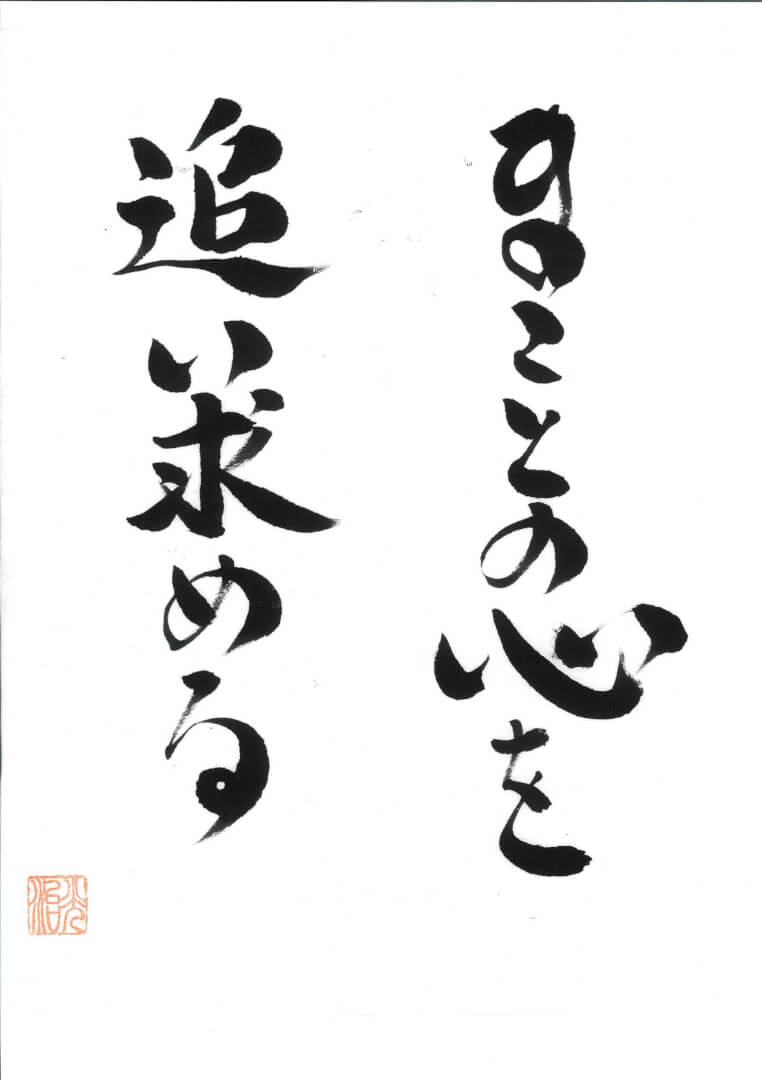 まことの心を
追い求める